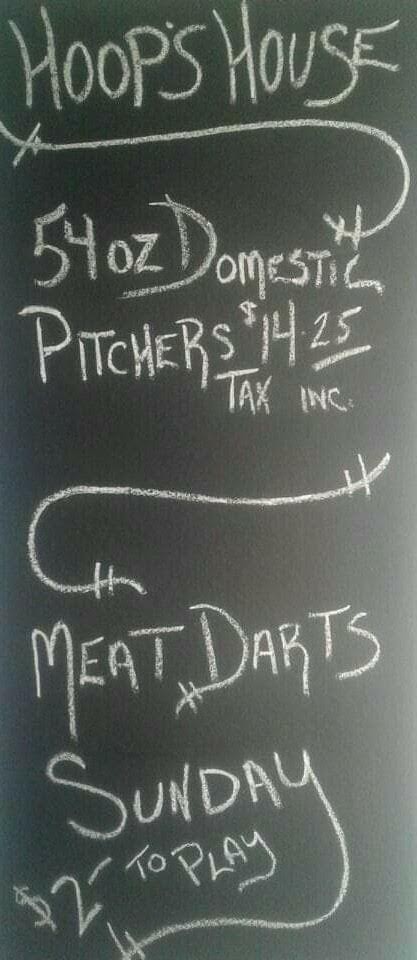 HOOP'S HOUSE
54 OZ DOMESTIC
PITCHERS $14.25
TAX INC.
MEAT DARTS
SUNDAY
$2 TO PLAY